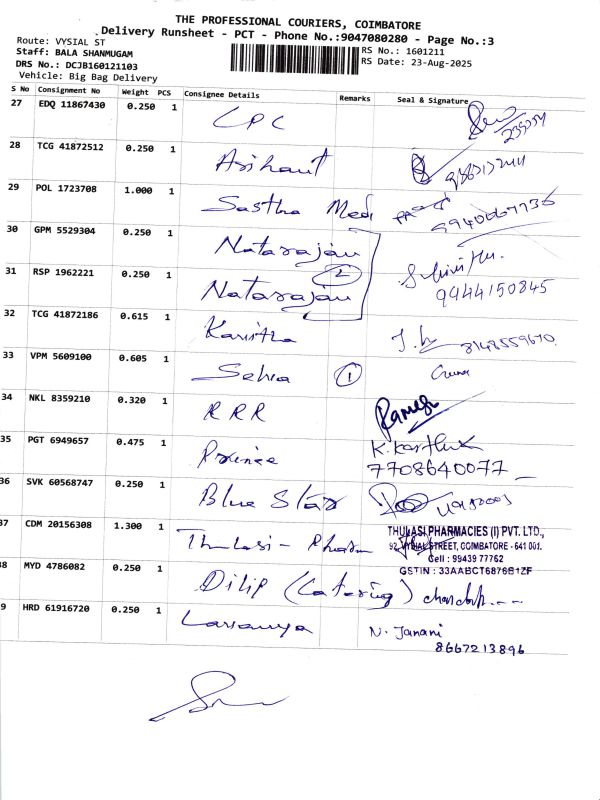 THE PROFESSIONAL COURIERS, COIMBATORE
Delivery Runsheet - PCT - Phone No.:9047080280 - Page No.:3
Route: VYSIAL ST
RS No.: 1601211
Staff: BALA SHANMUGAM
RS Date: 23-Aug-2025
DRS No.: DCJB160121103
Vehicle: Big Bag Delivery
S No Consignment No Weight PCS Consignee Details Remarks Seal & Signature
27 EDQ 11867430 0.250 1 CPC
28 TCG 41872512 0.250 1 Arihant
29 POL 1723708 1.000 1 Sastha Medi 9940067736
30 GPM 5529304 0.250 1 Natarajan
2
31 RSP 1962221 0.250 1 Natarajan 9944150845
32 TCG 41872186 0.615 1 Kavitha 8148559670
33 VPM 5609100 0.605 1 Selva 1
34 NKL 8359210 0.320 1 RRR Ramesh
35 PGT 6949657 0.475 1 Prince K. Karthik
7708640077
36 SVK 60568747 0.250 1 Blue Star
37 CDM 20156308 1.300 1 Thulasi - Pharm THULASI PHARMACIES (I) PVT. LTD.,
92, VYSIAL STREET, COIMBATORE - 641 001.
Cell : 9943977762
GSTIN : 33AABCT6876B1ZF
38 MYD 4786082 0.250 1 Dilip (Catering)
39 HRD 61916720 0.250 1 Lavanya N. Janani
8667213896